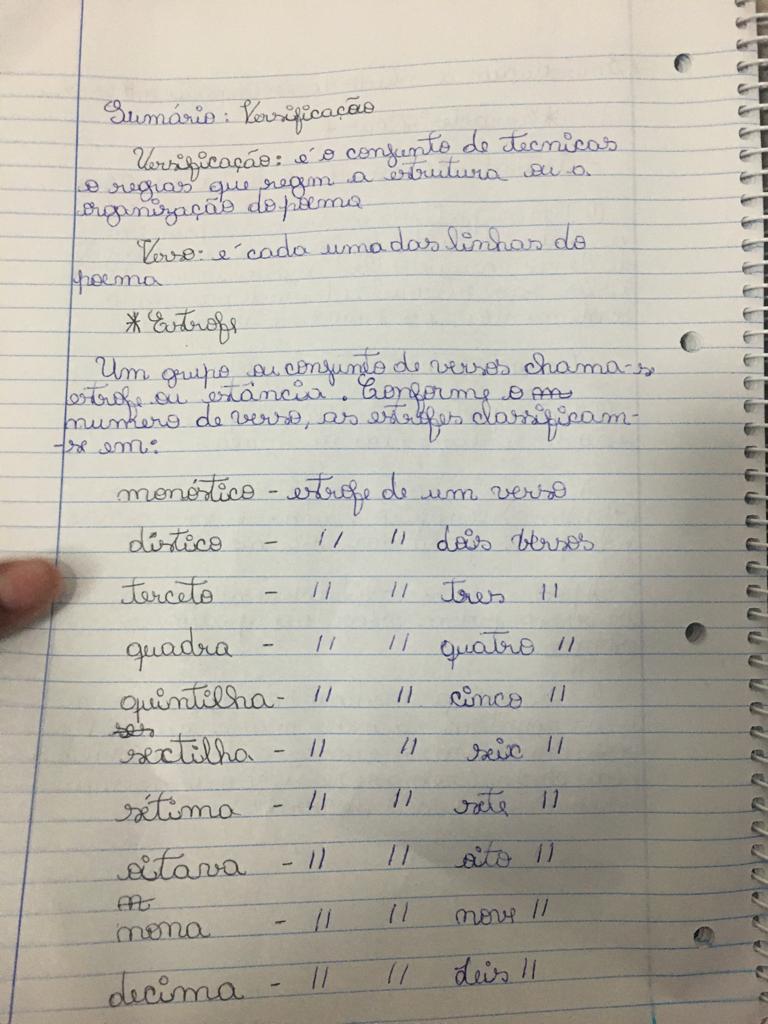 Sumário: Versificação
Versificação: é o conjunto de tecnicas
e regras que regem a estrutura ou a
organização do poema
Verso: é cada uma das linhas do
poema
* Estrofe
Um grupo ou conjunto de versos chama-se
estrofe ou estância. Conforme o
numero de verso, as estrofes classificam-
-se em:
monóstico - estrofe de um verso
dístico - " " dois versos
terceto - " " tres "
quadra - " " quatro "
quintilha - " " cinco "
sextilha - " " seix "
sétima - " " sete "
oitava - " " oito "
nona - " " nove "
decima - " " deis "